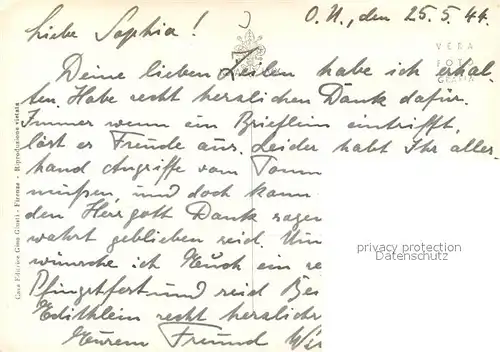 O. U., den 25. 5. 44.
Liebe Sophia!
VERA
FOTO
GRAFIA
Deine lieben Zeilen habe ich erhal-
ten. Habe recht herzlichen Dank dafür.
Immer wenn ein Brieflein eintrifft,
löst es Freude aus. Leider habt Ihr aller-
hand Angriffe vom Tomm
müssen, und doch kann
den Herrgott Dank sagen
wahrt geblieben seid. Nun
wünsche ich Euch ein re
Pfingstfest und seid Bei
Edithlein recht herzlich
Eurem Freund Wi
Casa Editrice Gino Giusti - Firenze - Riproduzione vietata
privacy protection
Datenschutz